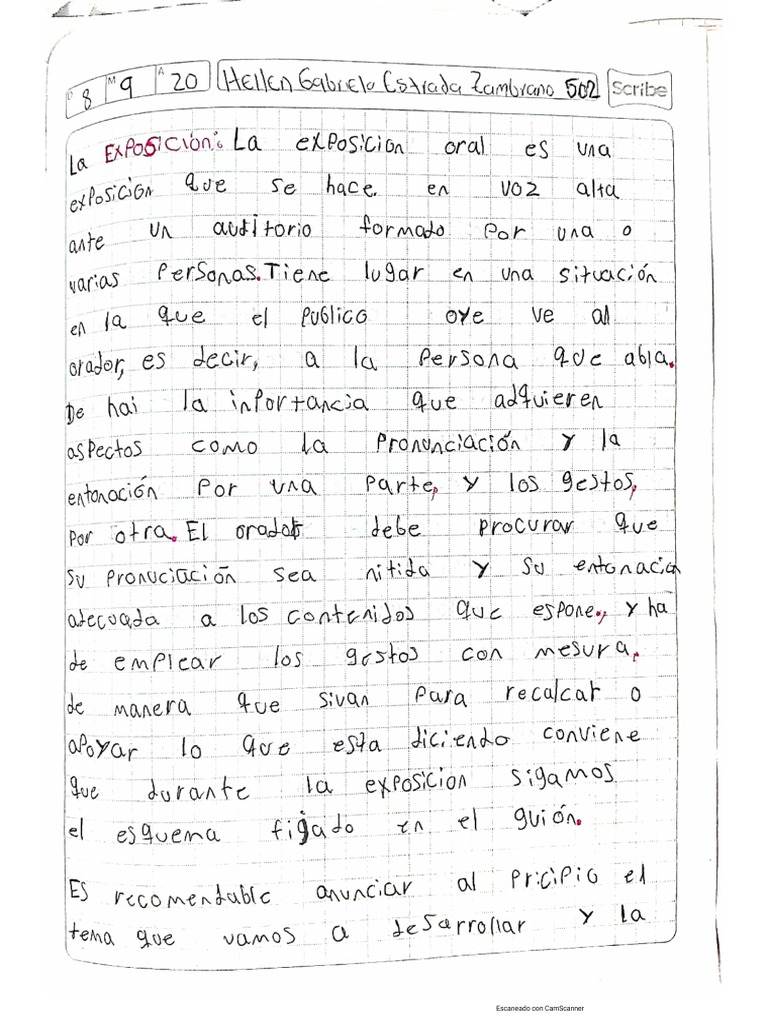 D 8 M 9 A 20 Hellen Gabriela Estrada Zambrano 502 Scribe
La EXPOSICIÓN: La exposicion oral es una
exposición que se hace en voz alta
ante un auditorio formado por una o
varias personas. Tiene lugar en una situación
en la que el publico oye ve al
orador, es decir, a la persona que abla.
De hai la inportancia que adquieren
aspectos como la pronunciación y la
entonación por una parte, y los gestos,
por otra. El orador debe procurar que
su pronuciación sea nitida y su entonación
adecuada a los contenidos que espone, y ha
de emplear los gestos con mesura,
de manera que sivan para recalcar o
apoyar lo que esta diciendo conviene
que durante la exposicion sigamos
el esquema figado en el guión.
Es recomendable anunciar al pricipio el
tema que vamos a desarrollar y la
Escaneado con CamScanner